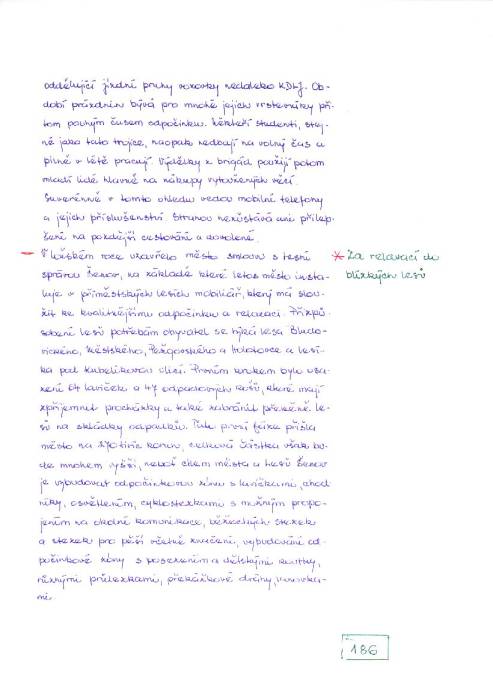 oddělující jízdní pruhy vozovky nedaleko KDLJ. Ob-
dobí prázdnin bývá pro mnohé jejich vrstevníky při-
tom pouhým časem odpočinku. Někteří studenti, stej-
ně jako tato trojice, naopak nedbají na volný čas a
pilně v létě pracují. Výdělky z brigád použijí potom
mladí lidé hlavně na nákupy vytoužených věcí.
Suverénně v tomto ohledu vedou mobilní telefony
a jejich příslušenství. Stranou nezůstává ani přilep-
šení na pozdější cestování a dovolené.
V loňském roce uzavřelo město smlouvu s Lesní
správou Šenov, na základě které letos město insta-
luje v příměstských lesích mobiliář, který má slou-
žit ke kvalitnějšímu odpočinku a relaxaci. Přizpů-
sobení lesů potřebám obyvatel se týká lesa Bludo-
vického, Městského, Pežgovského a Holotovce a lesí-
ka pod Kubelíkovou ulicí. Prvním krokem bylo usa-
zení 64 laviček a 47 odpadkových košů, které mají
zpříjemnit procházky a také zabránit přeměně le-
sů na skládky odpadků. Tato první fáze přišla
město na 270 tisíc korun, celková částka však bu-
de mnohem vyšší, neboť cílem města a Lesů Šenov
je vybudovat odpočinkovou zónu s lavičkami, chod-
níky, osvětlením, cyklostezkami s možným propo-
jením na okolní komunikace, běžeckých stezek
a stezek pro pěší včetně značení, vybudování od-
počinkové zóny s posezením a dětskými koutky,
různými průlezkami, překážkové dráhy,
mi.
Za relaxací do
blízkých lesů
186